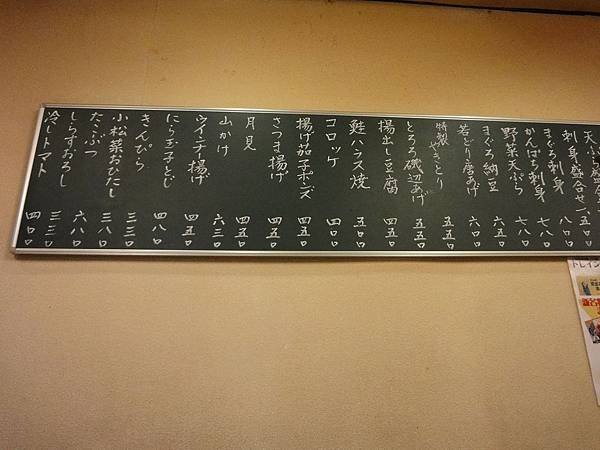 天ぷら盛合せ
刺身盛合せ 八〇〇
まぐろ刺身 七八〇
かんぱち刺身 七八〇
野菜天ぷら 六八〇
まぐろ納豆 六五〇
若どり唐あげ 六〇〇
特製やきとり 五五〇
とろろ磯辺あげ 五五〇
揚出し豆腐 五五〇
鮭ハラス焼 五〇〇
コロッケ 四〇〇
揚げ茄子ポンズ 四五〇
さつま揚げ 四五〇
月見 四五〇
山かけ 六三〇
ウインナ揚げ 四五〇
にら玉子とじ 四五〇
きんぴら 四八〇
小松菜おひたし 三三〇
たこぶつ 三八〇
しらすおろし 六八〇
冷しトマト 三三〇
四〇〇
トレイン